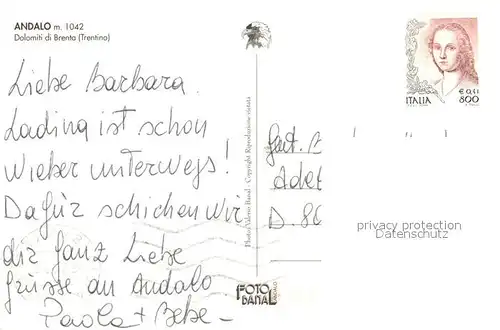 ANDALO m. 1042
Dolomiti di Brenta (Trentino)
Liebe Barbara.
Ladina ist schon
wieber unterwegs!
Dafür schicken wir
dir ganz Liebe
Grüsse an Andalo
Paola + Bebe -
Photo Valerio Banal - Copyright Riproduzione vietata
FOTO
BANAL
ANDALO
ITALIA 800
D. 80
privacy protection
Datenschutz